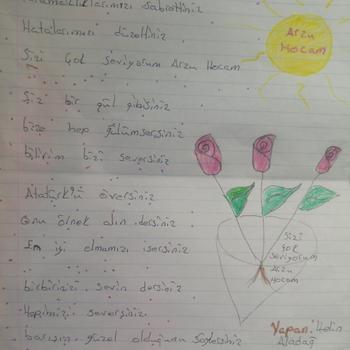 Yaramazlıklarımızı sabrettiniz
Hatalarımızı düzelttiniz
Sizi çok seviyorum Arzu Hocam
Siz bir gül gibisiniz
bize hep gülümsersiniz
bilirim bizi seversiniz
Atatürk'ü översiniz
Onu örnek alın dersiniz
En iyi olmamızı istersiniz
birbirinizi sevin dersiniz
Hepimizi seversiniz
barışın güzel olduğunu söylersiniz
Arzu
Hocam
Sizi
çok
Seviyorum
Arzu
Hocam
Yapan: Helin
Aladağ